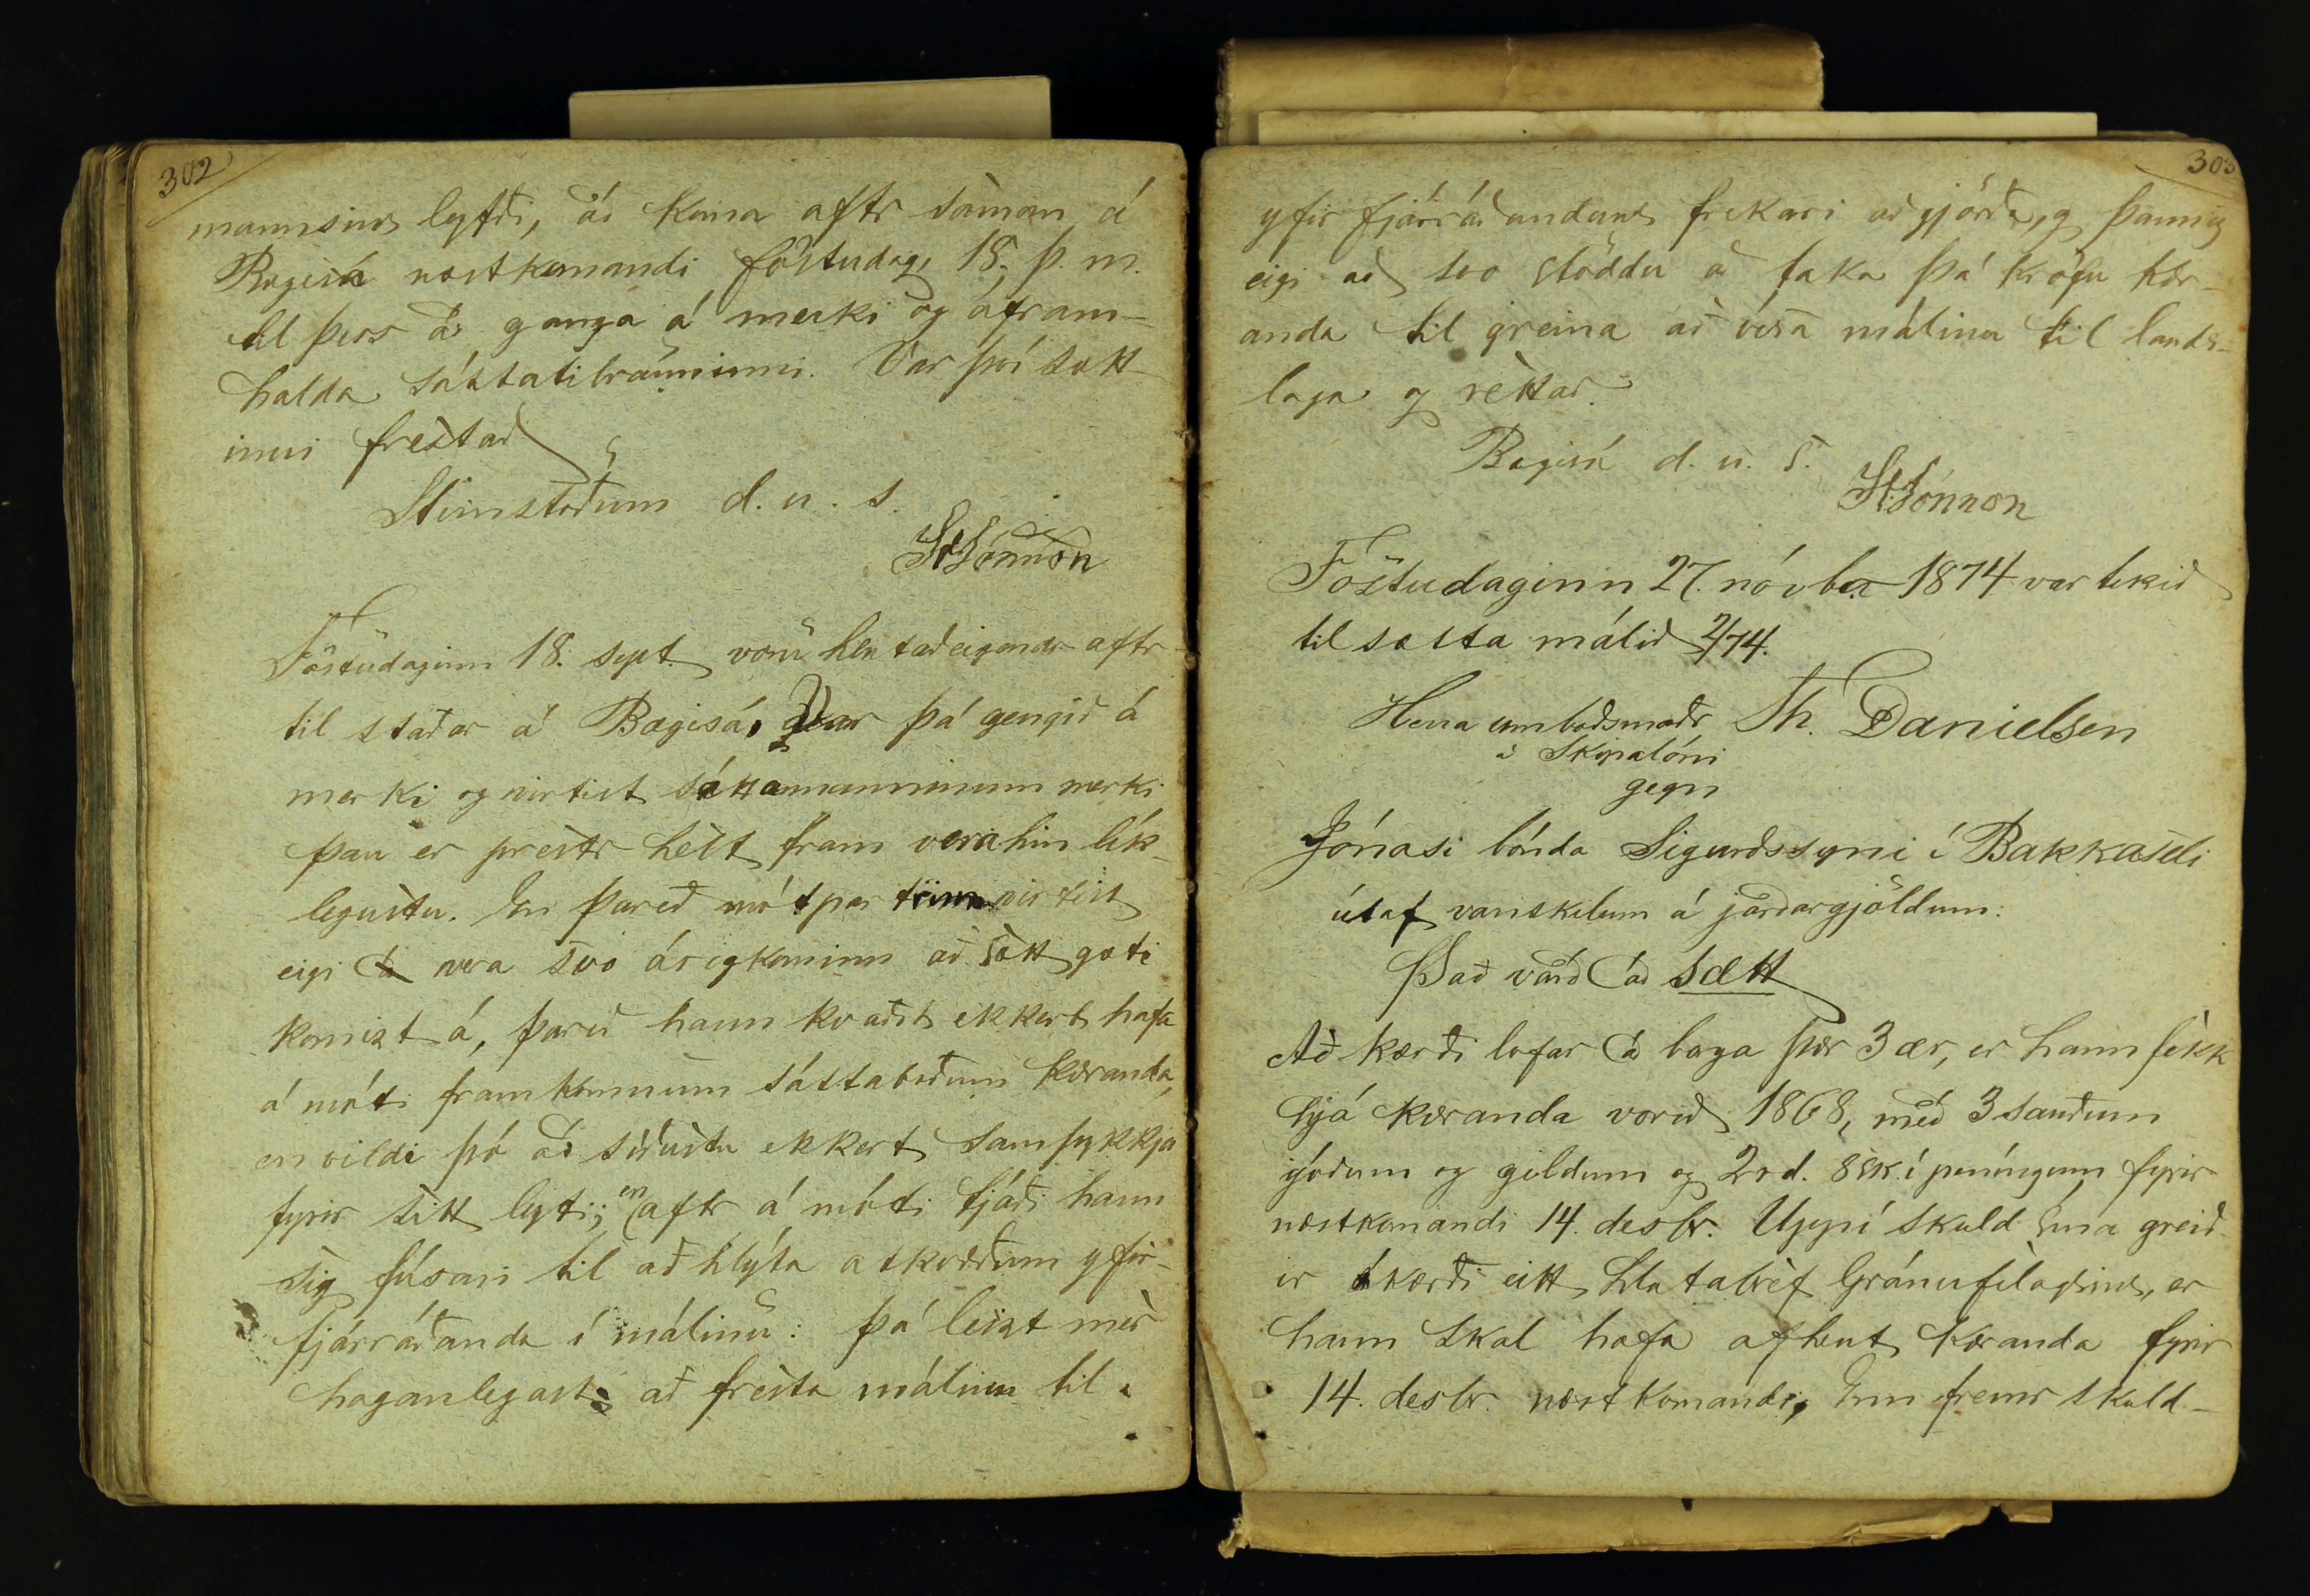 302
mannsins leyfði, að koma aftr saman á
Bægisá næstkomandi föstudag, 18. þ. m.
til þess að ganga á merki og áfram-
halda sáttatilrauninni. Var því sætt-
inni frestað
Steinstöðum d. u. s.
StJónsson
Föstudaginn 18. sept. voru hlutaðeigendr aftr
til staðar á Bægisá, Var þá gengið á
merki og virtist sáttamanninum merki
þau er prestr hélt fram vera hin lík-
legustu. En þareð mótpartrinn virtist
eigi að vera svo ásigkominn að sætt gæti
komizt á, þareð hann kvaðst ekkert hafa
á móti framkomnum sáttaboðum kæranda,
en vildi þó að síðustu ekkert samþykkja
fyrir sitt leyti; en aftr á móti tjáði hann
sig fúsari til að hlýta atkvæðum yfir-
fjárráðanda í málinu: þá leizt mér
haganlegast að fresta málinu til
303
yfir fjárráðandans frekari aðgjörða, og þannig
eigi að svo stöddu að taka þá kröfu kær-
anda til greina að vísa málinu til lands-
laga og réttar.
Bægisá d. u. s.
StJónsson
Föstudaginn 27. nóvber 1874 var tekið
til sætta málið 2/74.
Herra umboðsmaðr Th. Danielsen
á Skipalóni
gegn
Jónasi bónda Sigurðssyni í Bakkaseli
útaf vanskilum á jarðargjöldum:
Það varð að sætt
Að kærði lofar að borga þær 3 ær, er hann fékk
hjá kæranda vorið 1868, með 3 sauðum
góðum og gildum og 2rd. 8sk. í peníngum fyrir
næstkomandi 14. desbr. Uppí skuld sína greið-
ir kærði eitt hlutabréf Gránufélagsins, er
hann skal hafa afhent kæranda fyrir
14. desbr. næstkomandi, Enn fremr skuld-